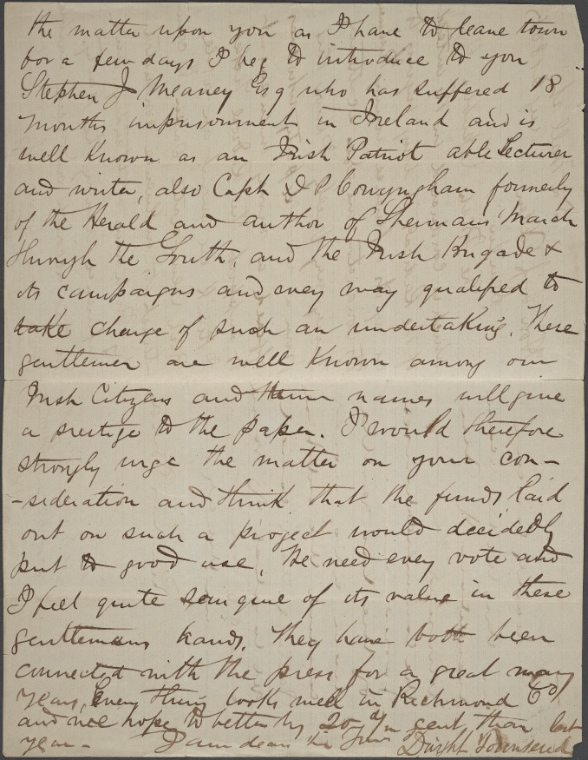 the matter upon you as I have to leave town
for a few days I beg to introduce to you
Stephen J Meaney Esq who has suffered 18
months imprisonment in Ireland and is
well known as an Irish Patriot able Lecturer
and writer, also Capt D P Conyngham formerly
of the Herald and author of Shermans March
through the South, and the Irish Brigade &
its campaigns and every way qualified to
take charge of such an undertaking. These
gentlemen are well known among our
Irish Citizens and their names will give
a prestige to the paper. I would therefore
strongly urge the matter on your con-
-sideration and think that the funds laid
out on such a project would decidedly
put to good use, We need every vote and
I feel quite sanguine of its value in these
gentlemans hands. They have both been
connected with the press for a great many
years, Every thing looks well in Richmond Co
and we hope to better by 20 cent than last
year - I am dear Dwight Townsend